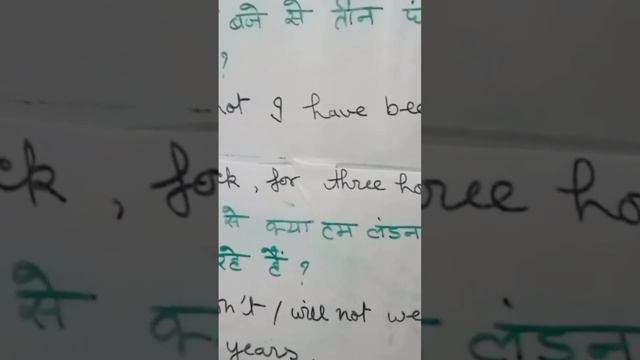 बजे से तीन
?
not I have bee
ck, for three ho
से क्या हम लंडन
रहे हैं?
n't / will not we
years.